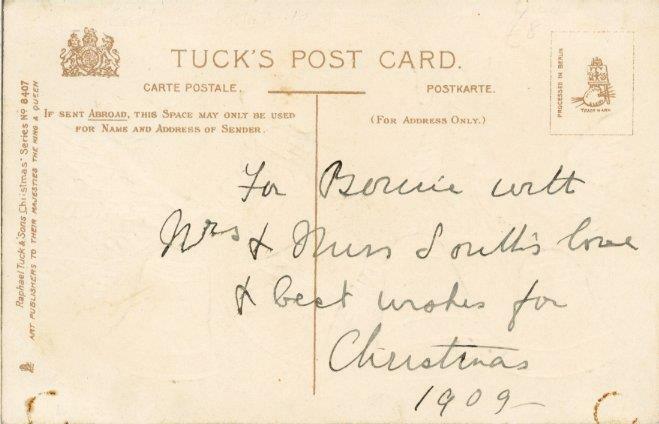 TUCK'S POST CARD.
CARTE POSTALE.
POSTKARTE.
IF SENT ABROAD, THIS SPACE MAY ONLY BE USED
FOR NAME AND ADDRESS OF SENDER.
(FOR ADDRESS ONLY.)
PROCESSED IN BERLIN
TRADE MARK
Raphael Tuck & Sons "Christmas" Series Nº 8407
ART PUBLISHERS TO THEIR MAJESTIES THE KING & QUEEN
For Bonnie with
Mrs & Miss South's love
& best wishes for
Christmas
1909